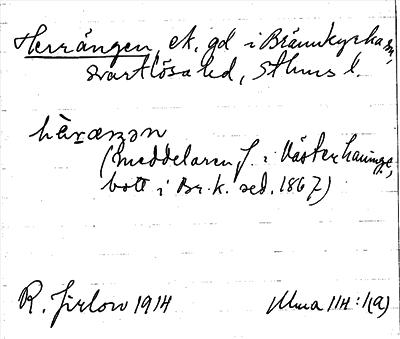 Herrängen, ek. gd i Brännkyrka sn,
Svartlösa hd, Sthms l.
hæ̀ræŋən
(meddelaren f. i Västerhaninge,
bott i Br.k. sed. 1867)
R. Jirlow 1914 Ulma 114:1(a)